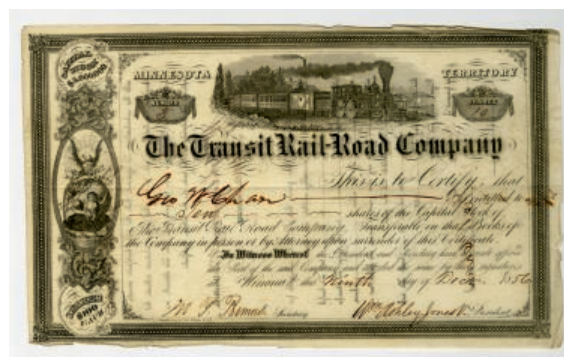 CAPITAL STOCK
MINNESOTA TERRITORY
NUMBER SHARES
10
The Transit Rail-Road Company
This is to Certify, that
Geo W Chase is entitled to
Ten shares of the Capital Stock of
The Transit Rail Road Company. Transferable on the Books of
the Company in person or by Attorney upon surrender of this Certificate.
In Witness Whereof the President and Secretary have
the Seal of the said Company
Winona this Ninth day of Decr. 1856
Secretary Wm Ashley Jones President
$100 EACH